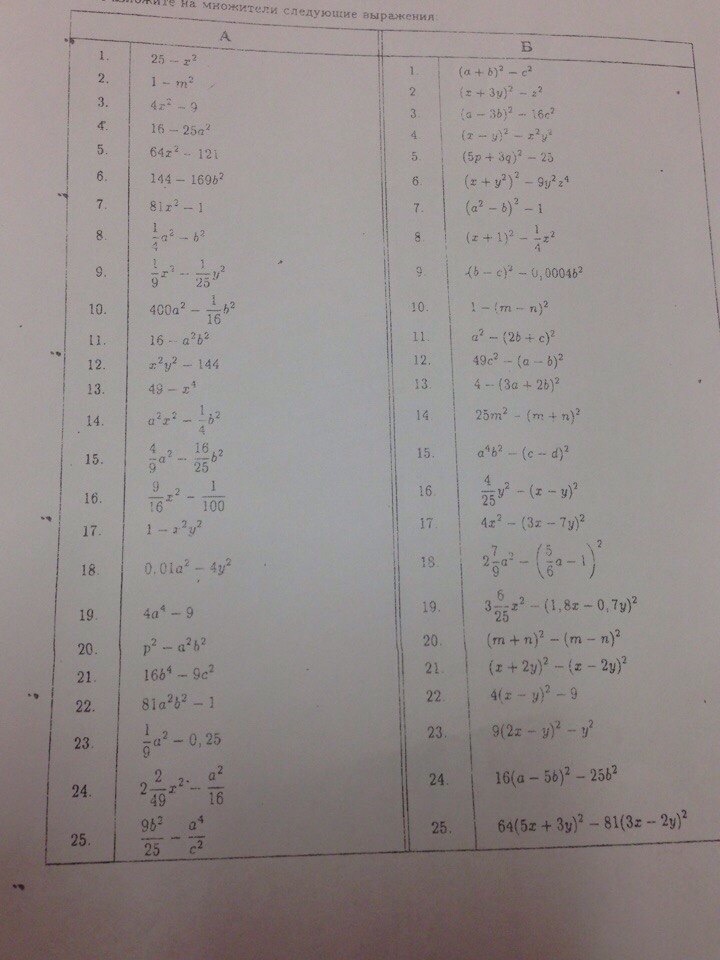 на множители следующие выражения
А Б
1. 25 − x² 1. (a + b)² − c²
2. 1 − m² 2 (x + 3y)² − z²
3. 4x² − 9 3. (a − 3b)² − 16c²
4. 16 − 25a² 4. (x − y)² − x²y²
5. 64x² − 121 5. (5p + 3q)² − 25
6. 144 − 169b² 6. (x + y²)² − 9y²z⁴
7. 81x² − 1 7. (a² − b)² − 1
8. 1/4 a² − b² 8. (x + 1)² − 1/4 x²
9. 1/9 x² − 1/25 y² 9 (b − c)² − 0,0004b²
10. 400a² − 1/16 b² 10. 1 − (m − n)²
11. 16 − a²b² 11. a² − (2b + c)²
12. x²y² − 144 12. 49c² − (a − b)²
13. 49 − x⁴ 13. 4 − (3a + 2b)²
14. a²x² − 1/4 b² 14. 25m² − (m + n)²
15. 4/9 a² − 16/25 b² 15. a⁴b² − (c − d)²
16. 9/16 x² − 1/100 16. 4/25 y² − (x − y)²
17. 1 − x²y² 17. 4x² − (3x − 7y)²
18. 0,01a² − 4y² 18. 2 7/9 a² − (5/6 a − 1)²
19. 4a⁴ − 9 19. 3 6/25 x² − (1,8x − 0,7y)²
20. p² − a²b² 20. (m + n)² − (m − n)²
21. 16b⁴ − 9c² 21. (x + 2y)² − (x − 2y)²
22. 81a²b² − 1 22. 4(x − y)² − 9
23. 1/9 a² − 0,25 23. 9(2x − y)² − y²
24. 2 2/49 x² − a²/16 24. 16(a − 5b)² − 25b²
25. 9b²/25 − a⁴/c² 25. 64(5x + 3y)² − 81(3x − 2y)²